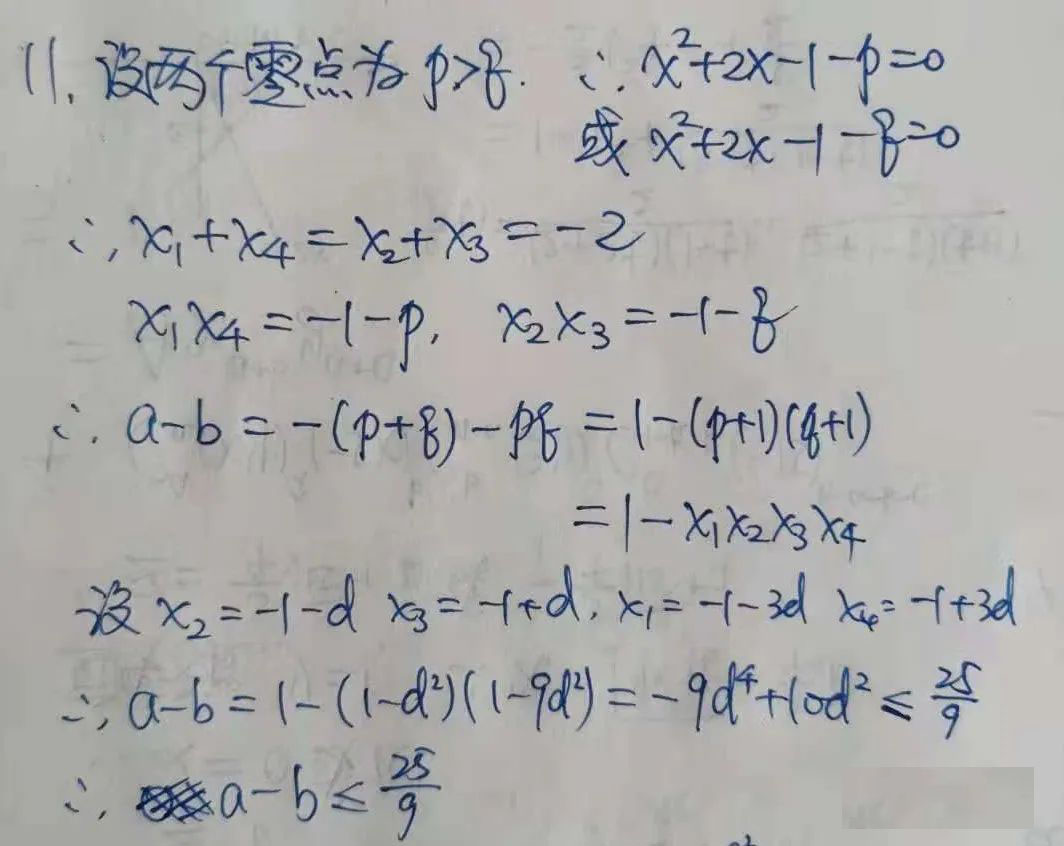 11. 设两个零点为 p>q. ∵ x²+2x-1-p=0
或 x²+2x-1-q=0
∴ x₁+x₄=x₂+x₃=-2
x₁x₄=-1-p, x₂x₃=-1-q
∴ a-b=-(p+q)-pq=1-(p+1)(q+1)
=1-x₁x₂x₃x₄
设 x₂=-1-d x₃=-1+d, x₁=-1-3d x₄=-1+3d
∴ a-b=1-(1-d²)(1-9d²)=-9d⁴+10d²≤25/9
∴ a-b≤25/9